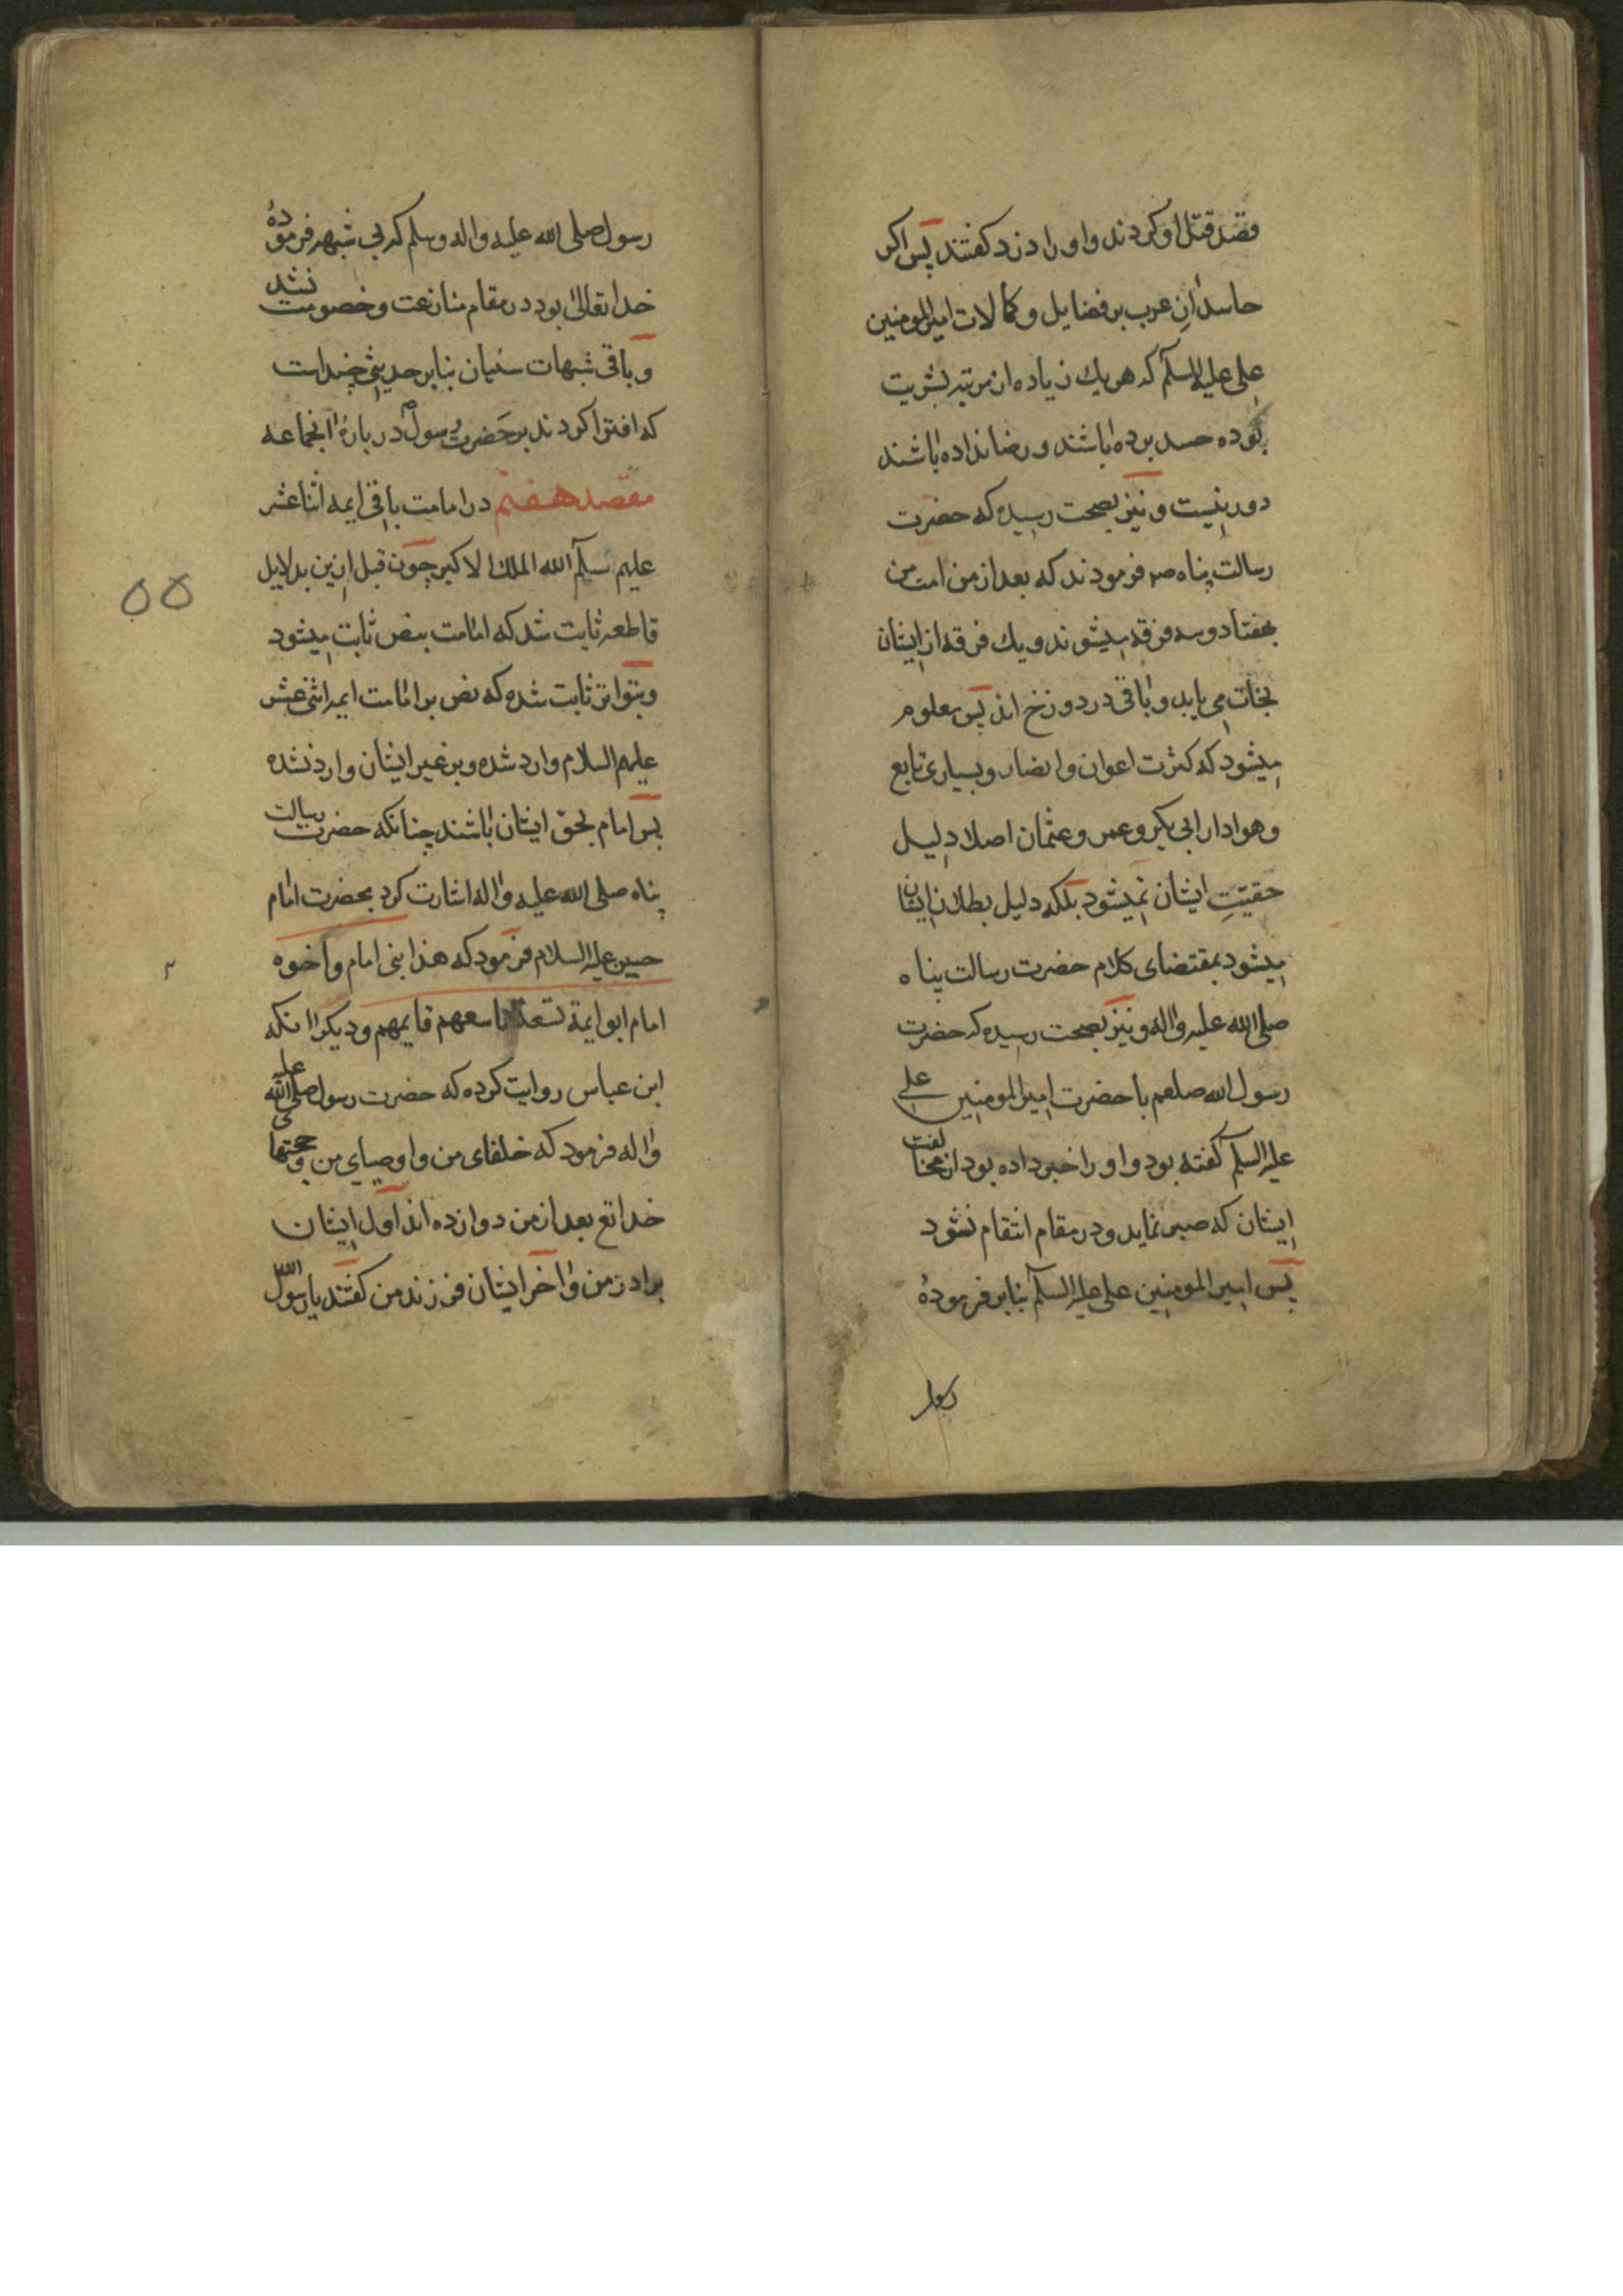 قصد قتل او کردند و او را دزد کفتند پس اکر
حاسدان عرب بر فضایل و کمالات امیرالمومنین
علی علیه السلم که هر یك زیاده از مرتبه بشریت
بوده حسد برده باشند و رضا نداده باشند
دور نیست و نیز بصحت رسیده که حضرت
رسالت پناه صم فرمودند که بعد از من امت من
بهفتاد و سه فرقه میشوند و یك فرقه از ایشان
نجات می یابد و باقی در دوزخ اند پس معلوم
میشود که کثرت اعوان و انصار و بسیاری تابع
و هوادار ابی بکر و عمر و عثمان اصلا دلیل
حقیت ایشان نمیشود بلکه دلیل بطلان ایشان
میشود بمقتضای کلام حضرت رسالت پناه
صلی الله علیه واله و نیز بصحت رسیده که حضرت
رسول الله صلعم با حضرت امیرالمومنین علی
علیه السلم کفته بود و او را خبر داده بود از مخالفت
ایشان که صبر نماید و در مقام انتقام نشود
پس امیر المومنین علی علیه السلم بنابر فرمودهٔ
رسول
رسول صلی الله علیه واله وسلم که بی شبهه فرمودهٔ
خدا تعالی بود در مقام منازعت و خصومت نشد
و باقی شبهات سنیان بنابر حدیثی چند است
که افترا کردند بر حضرت رسول ص در بارهٔ انجماعه
مقصد هفتم در امامت باقی ایمه اثنا عشر
علیهم سلم الله الملك الاکبر چون قبل ازین بدلایل
قاطعه ثابت شد که امامت بنص ثابت میشود
و بتواتر ثابت شده که نص بر امامت ایمه اثنی عشر
علیهم السلام وارد شده و بر غیر ایشان وارد نشده
پس امام بحق ایشان باشند چنانکه حضرت رسالت
پناه صلی الله علیه واله اشارت کرد بحضرت امام
حسین علیه السلام فرمود که هذا بنی امام و اخوه
امام ابو ایمة تسعة تاسعهم قایمهم و دیکر انکه
ابن عباس روایت کرده که حضرت رسول صلی الله علیه
واله فرمود که خلفای من و اوصیای من و حجتهای
خدا تع بعد از من دوازده اند اول ایشان
برادر من و اخر ایشان فرزند من کفتند یا رسول الله
۵۵